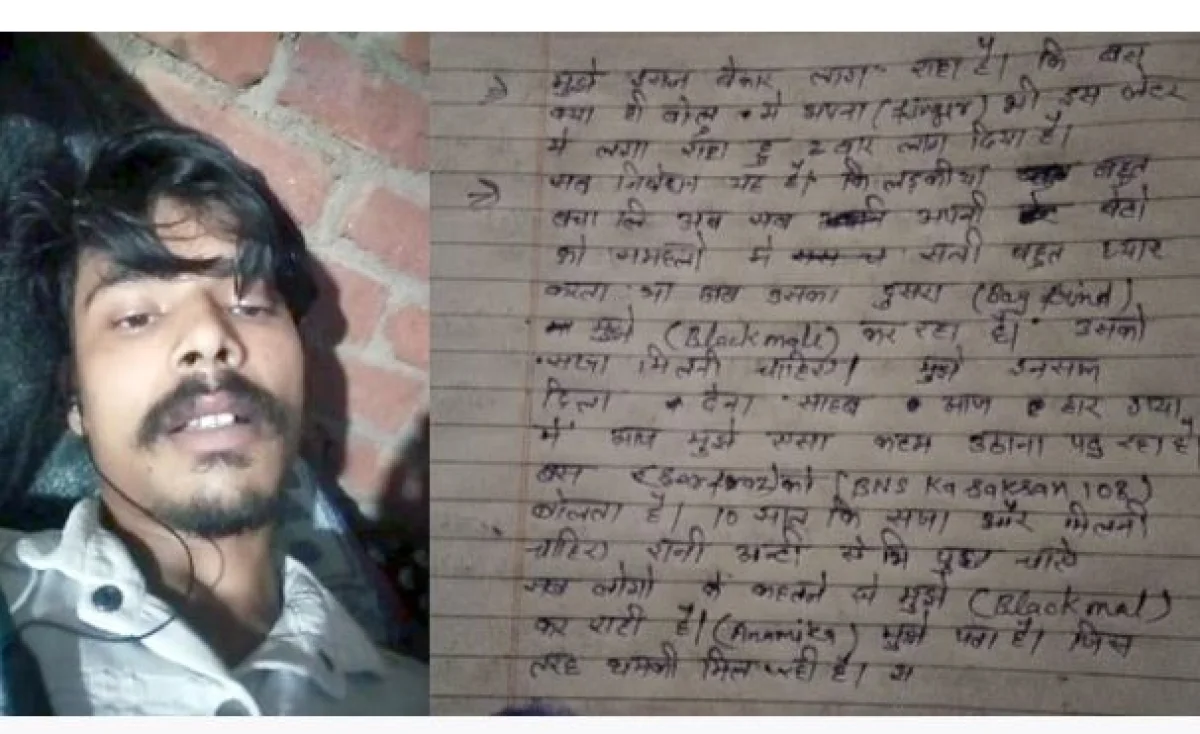 मुझे इगज बेकार लाग राहा है। कि बस
क्या ही बोलु मे अपना (Finger) भी इस लेटर
मे लगा राहा हु 2 बार लाग दिया है।
सब निवेदन है। कि लड़कीया बहुत
अब सब अपनी बेटी
को समहलो मे रानी बहुत प्यार
करता था अब उसका दुसरा (Bay friend)
मुझे (Blackmale) कर रहा है। उसको
सजा मिलनी चाहिए। मुझे इनसाफ
दिला देना साहब आज हार गया
में आज मुझे एसा कदम उठाना पडु रहा है
बस को (BNS Ka Saksan 108)
बोलता है। 10 साल कि सजा और मिलनी
चाहिए रानी अन्टी से भि पुछा चाहे
सब लोगो के कहलने से मुझे (Blackmal)
कर राही है। (Anamika) मुझे पता है। जिस
तरह धमकी मिल रही है। स